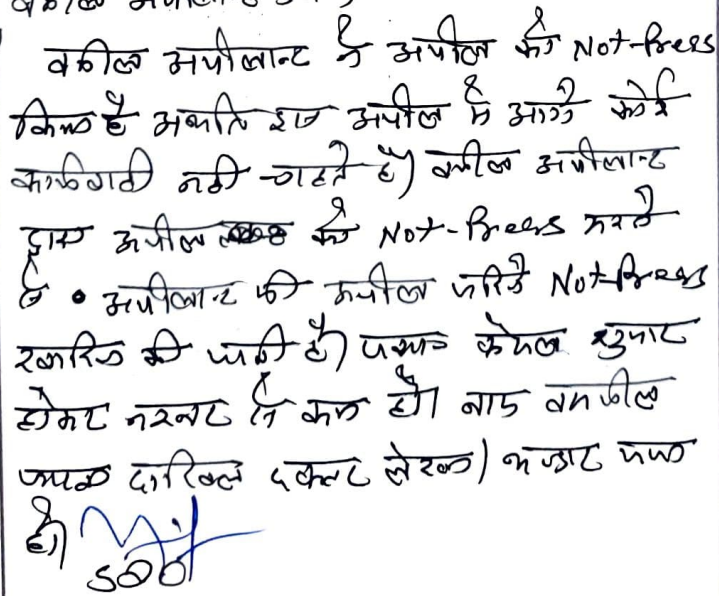 वकील अपीलान्ट ने अपील को Not-Press
किया है अर्थात इस अपील में आगे कोई
कार्यवाही नही चाहते है। वकील अपीलान्ट
द्वारा अपील को Not-Press करने
से अपीलान्ट की अपील जरिये Not-Press
खारिज की जाती है। पत्रावली फैसल शुमार
होकर नम्बर से कम हो। बाद तकमील
दाखिल दफ्तर लेखा
हो।
SDO